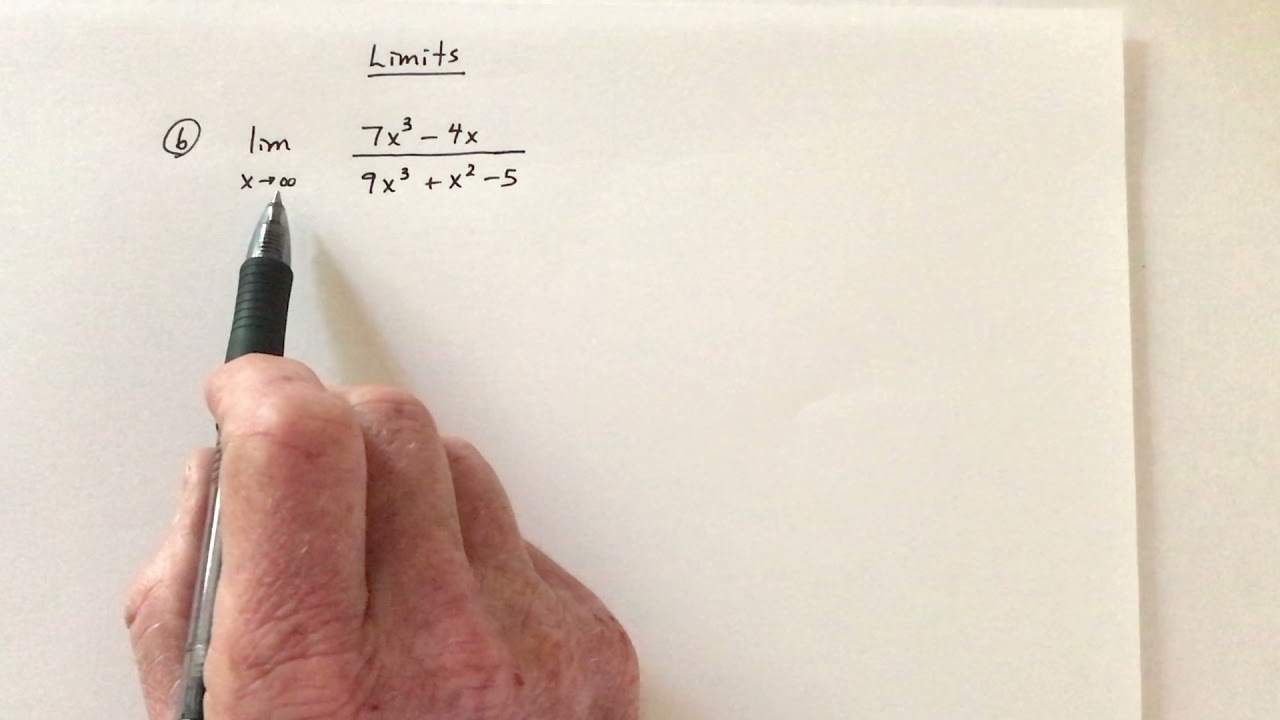 Limits
ⓑ lim 7x³ − 4x
x→∞ 9x³ + x² − 5